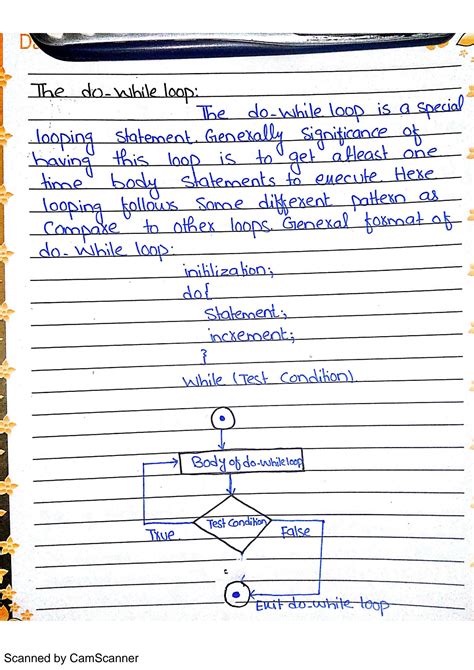 The do-while loop:
The do-while loop is a special
looping statement. Generally significance of
having this loop is to get atleast one
time body statements to execute Here
looping follows some different pattern as
compare to other loops. General format of
do-while loop:
initilization;
do{
Statement;
increment;
}
While (Test Condition).
Body of do-while loop
Test Condition
True
False
Exit do-while loop
Scanned by CamScanner